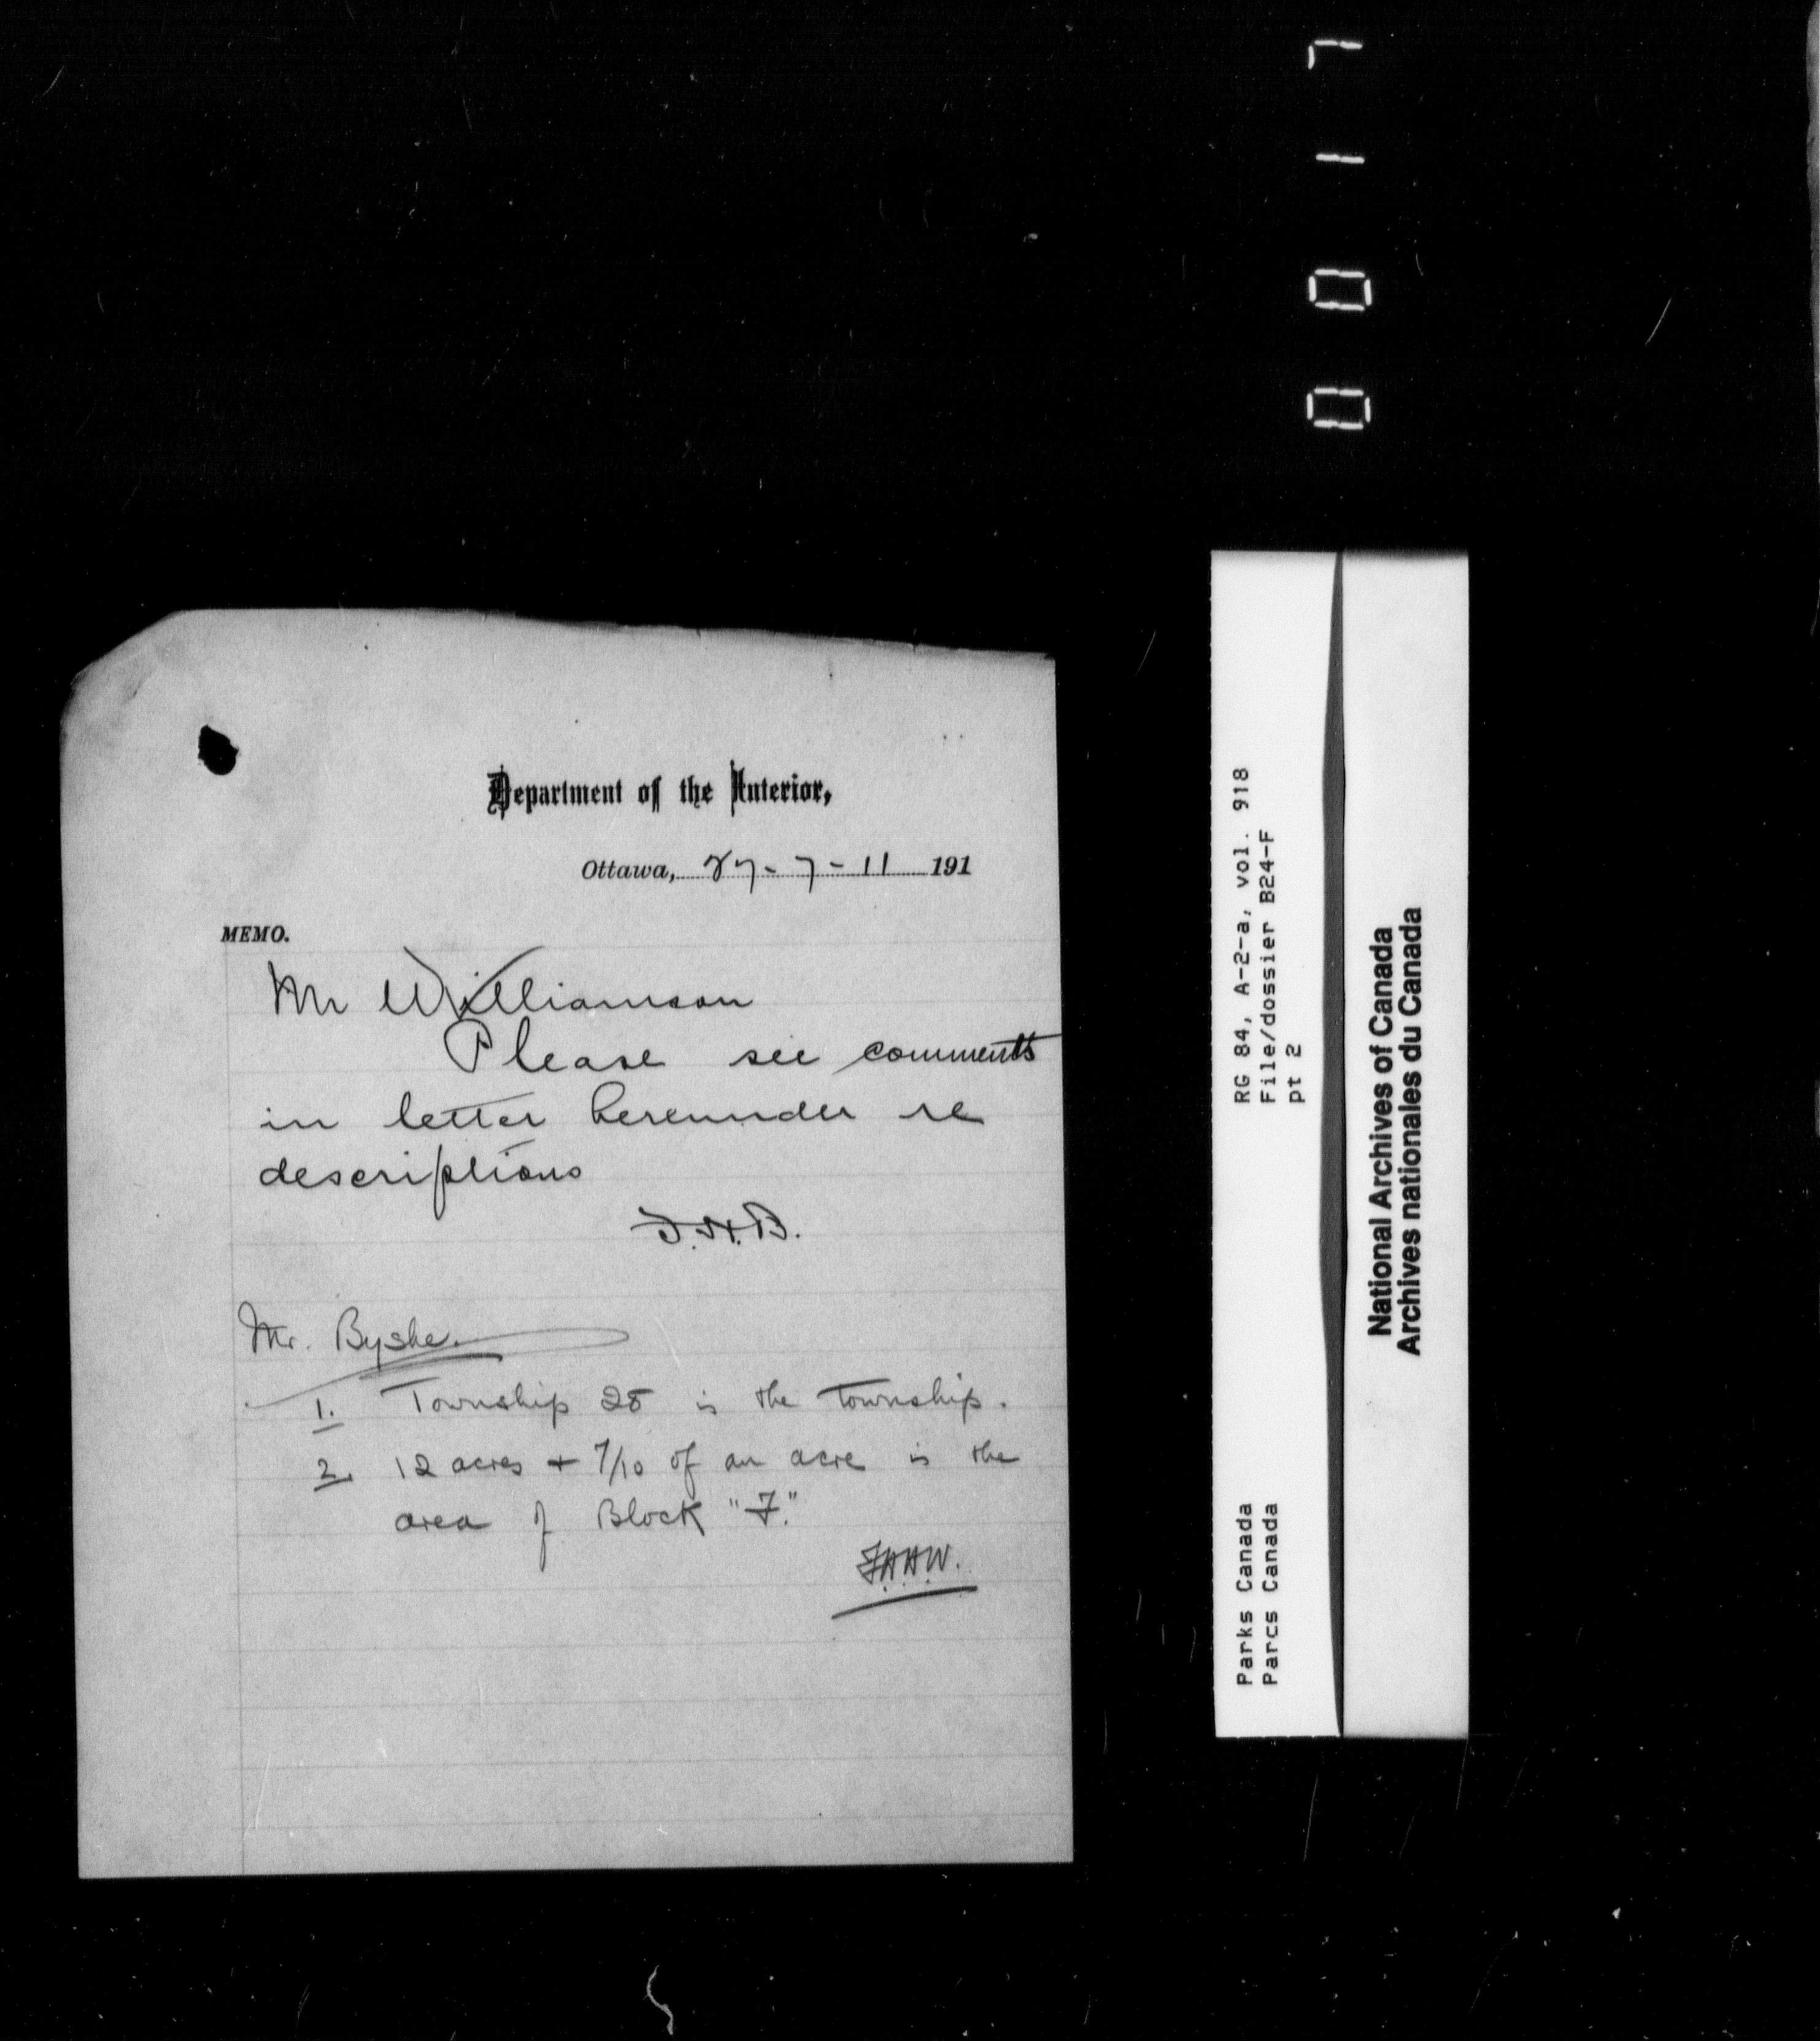 Department of the Interior,
Ottawa, 27-7-11 191
MEMO.
Mr Williamson
Please see comments
in letter hereunder re
descriptions
F.H.B.
Mr. Byshe.
1. Township 25 is the township.
2. 12 acres + 7/10 of an acre is the
area of Block "F."
F.A.H.W.
RG 84, A-2-a, vol. 918
File/dossier B24-F
pt 2
Parks Canada
Parcs Canada
National Archives of Canada
Archives nationales du Canada